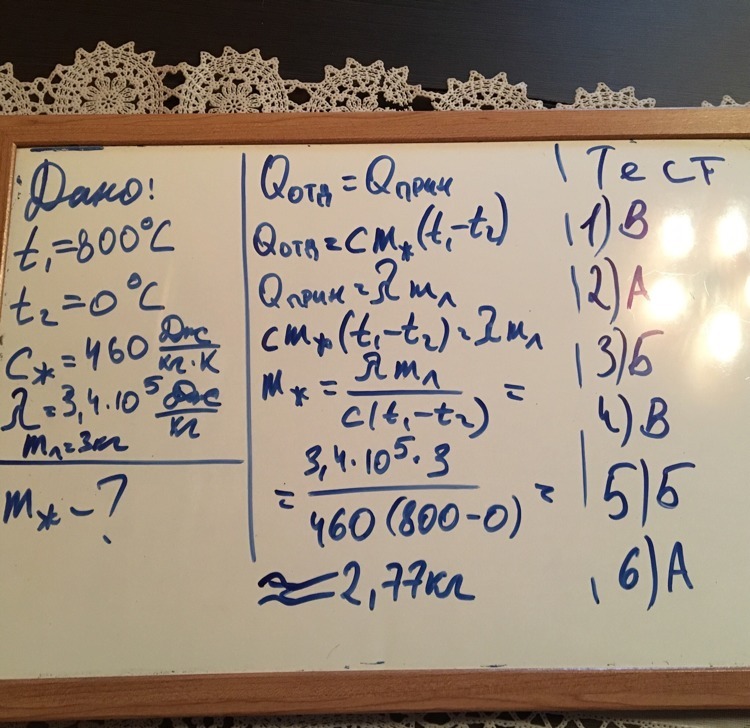 Дано:
t₁=800°C
t₂=0°C
Cж=460 Дж/кг·К
λ=3,4·10⁵ Дж/кг
mл=3кг
mж-?
Qотд=Qприн
Qотд=cmж(t₁-t₂)
Qприн=λmл
cmж(t₁-t₂)=λmл
mж=λmл/c(t₁-t₂)=
=3,4·10⁵·3/460(800-0)=
≈2,77кг
Тест
1)В
2)А
3)Б
4)В
5)Б
6)А